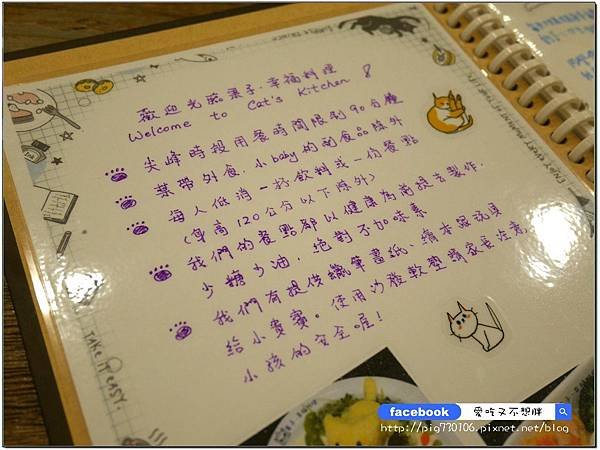 歡迎光臨栗子.幸福料理
Welcome to Cat's Kitchen
尖峰時段用餐時間限制90分鐘
禁帶外食.小baby的副食品除外
每人低消一杯飲料或一份餐點
(身高120公分以下除外)
我們的餐點都以健康為前提去製作.
少糖少油.絕對不加味素
我們有提供蠟筆畫紙、繪本跟玩具
給小寶寶。使用沙發軟墊請家長注意
小孩的安全喔!
TAKE IT EASY.
facebook 愛吃又不想胖
http://pig770106.pixnet.net/blog